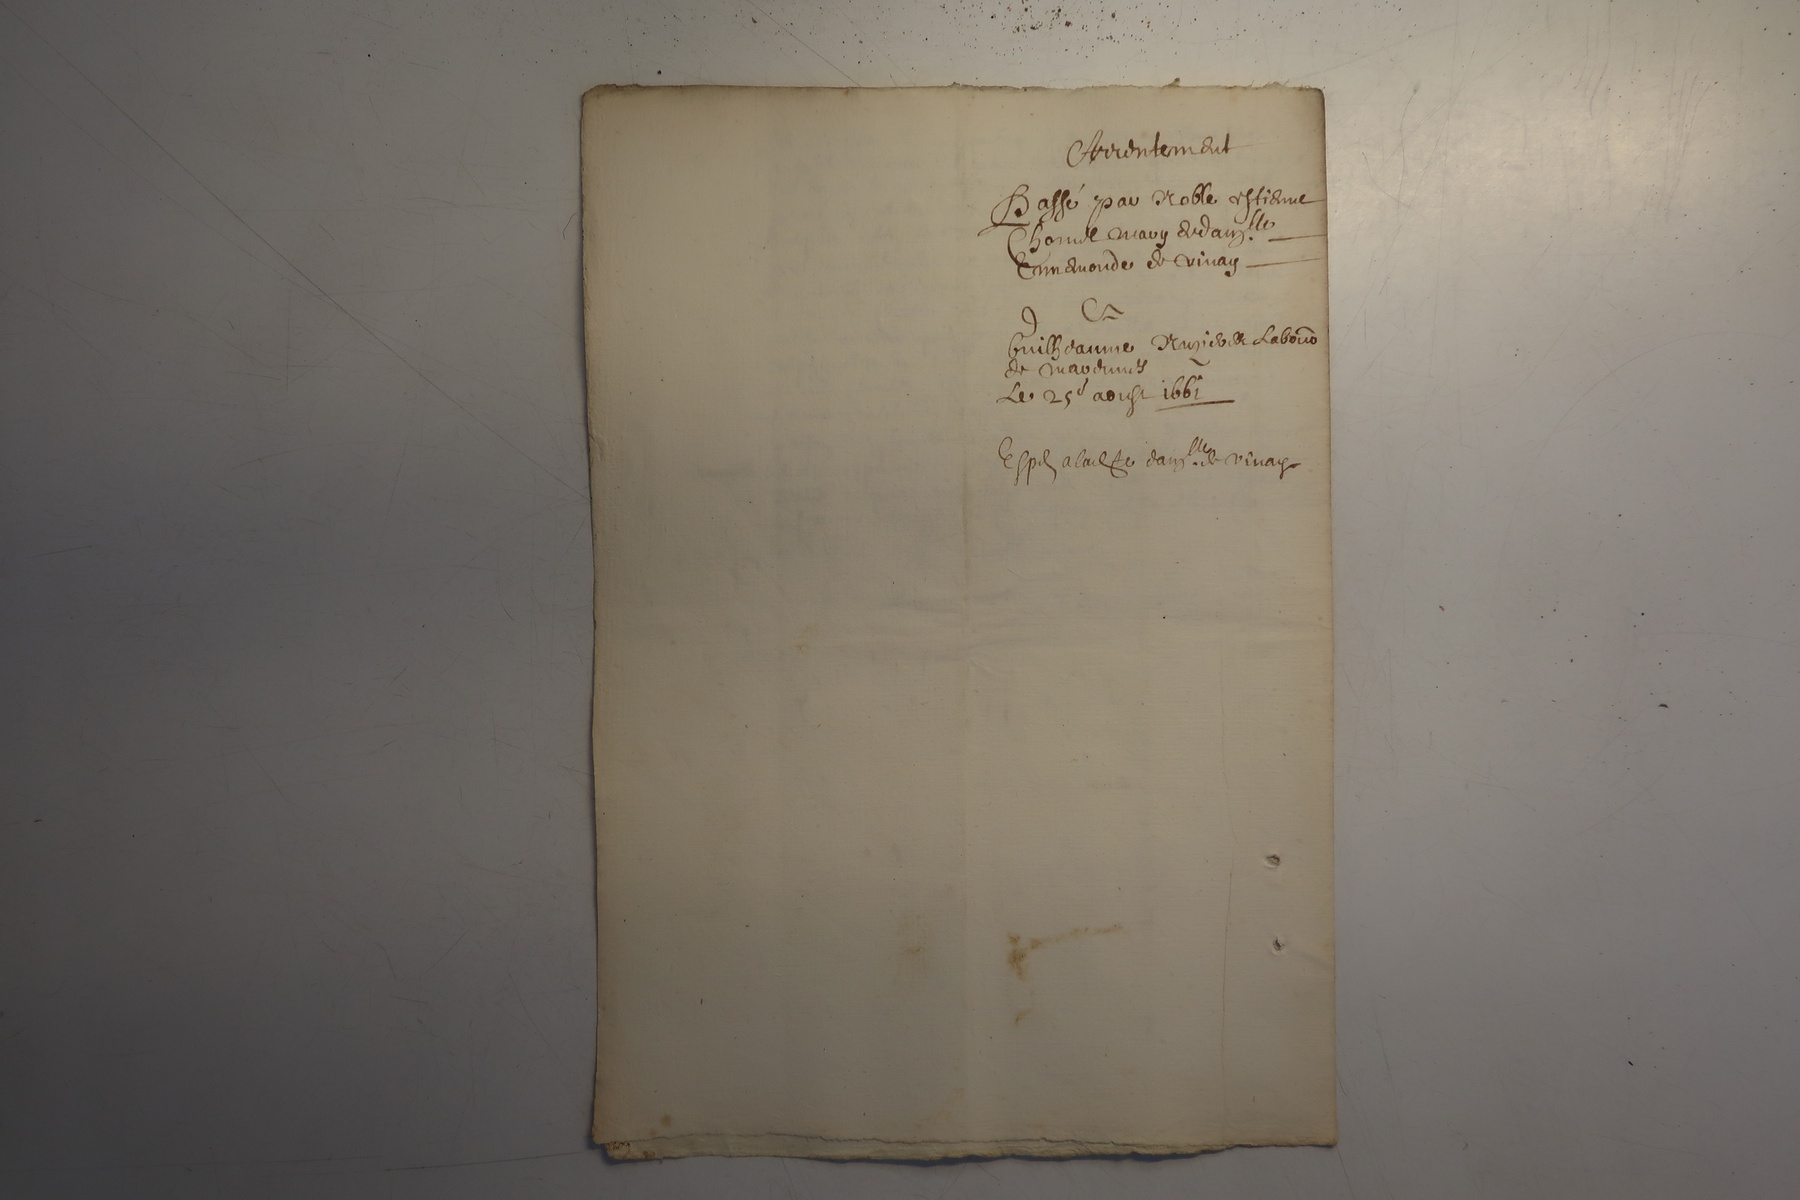 Arrentement
Passé par Noble estienne
Chomel mary de dam.lle
Ennemonde de vinay
A
Guilheaume labour
de
Le 25e aoust 1661
Exped a lad.te dam.lle de vinay